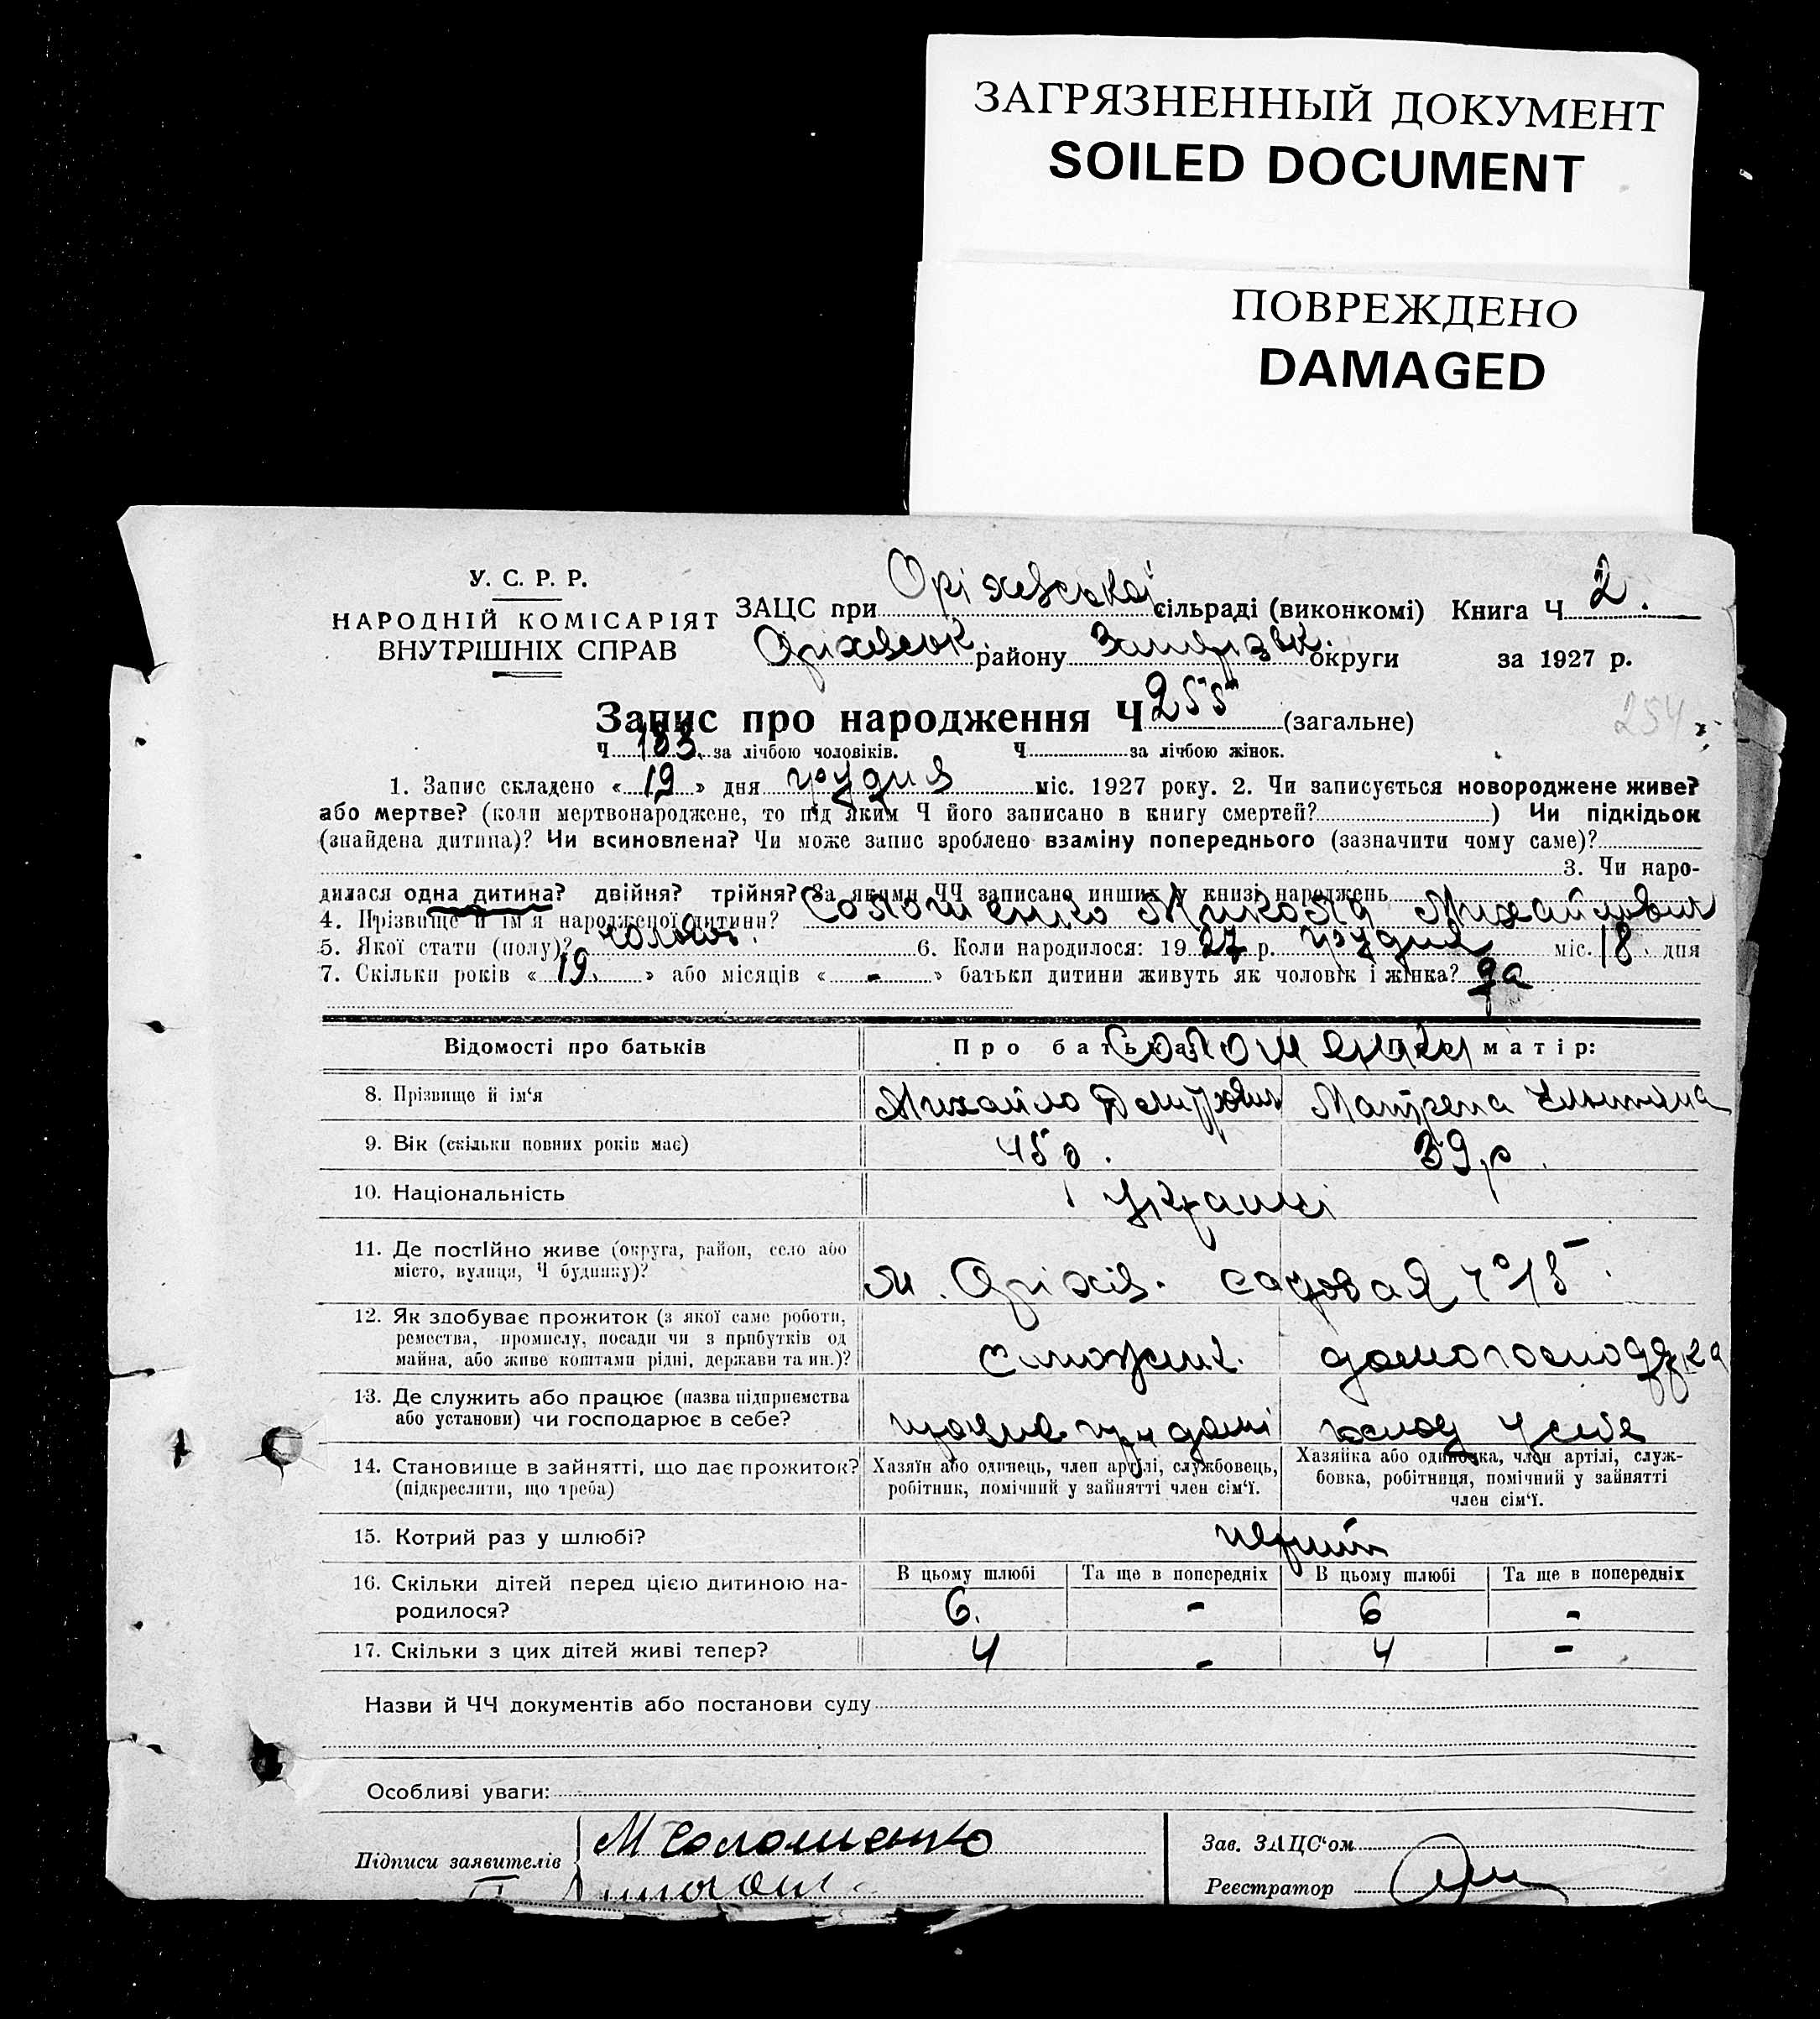 ЗАГРЯЗНЕННЫЙ ДОКУМЕНТ
SOILED DOCUMENT
ПОВРЕЖДЕНО
DAMAGED
У. С. Р. Р.
НАРОДНІЙ КОМІСАРІЯТ
ВНУТРІШНІХ СПРАВ
ЗАЦС при Оріхевської сільраді (виконкомі) Книга Ч 2.
Оріхевськ. району Запорізьк. округи за 1927 р.
Запис про народження Ч 255 (загальне)
254
Ч 183 за лічбою чоловіків. Ч за лічбою жінок.
1. Запис складено « 19 » дня грудня міс. 1927 року. 2. Чи записується новороджене живе?
або мертве? (коли мертвонароджене, то під яким Ч його записано в книгу смертей? ) Чи підкідьок
(знайдена дитина)? Чи всиновлена? Чи може запис зроблено взаміну попереднього (зазначити чому саме)?
3. Чи наро-
дилася одна дитина? двійня? трійня? За якими ЧЧ записано инших у книзі народжень
4. Прізвище й ім'я народженої дитини? Соломенко Микола Михайлович
5. Якої стати (полу)? чоловіч. 6. Коли народилося: 1927 р. грудня міс. 18 дня
7. Скільки років « 19 » або місяців « - » батьки дитини живуть як чоловік і жінка? да
Відомості про батьків Про батька: Про матір:
Соломенки
8. Прізвище й ім'я Михайло Матрена
9. Вік (скільки повних років має) 45 р. 39 р.
10. Національність Українці
11. Де постійно живе (округа, район, село або
місто, вулиця, Ч будинку)? м. Оріхів. Садовая Ч° 15
12. Як здобуває прожиток (з якої саме роботи,
ремества, промислу, посади чи з прибутків од
майна, або живе коштами рідні, держави та ин.)? домогосподарка
13. Де служить або працює (назва підприємства
або установи) чи господарює в себе? у себе
14. Становище в зайнятті, що дає прожиток?
(підкреслити, що треба)
Хазяїн або одинець, член артілі, службовець,
робітник, помічний у зайнятті член сім'ї.
Хазяйка або одиначка, член артілі, служ-
бовка, робітниця, помічний у зайнятті
член сім'ї.
15. Котрий раз у шлюбі? перший
16. Скільки дітей перед цією дитиною на-
родилося?
В цьому шлюбі Та ще в попередніх В цьому шлюбі Та ще в попередніх
6. - 6 -
17. Скільки з цих дітей живі тепер? 4 - 4 -
Назви й ЧЧ документів або постанови суду
Особливі уваги:
Підписи заявителів М Соломенко
Зав. ЗАЦС'ом
Реєстратор